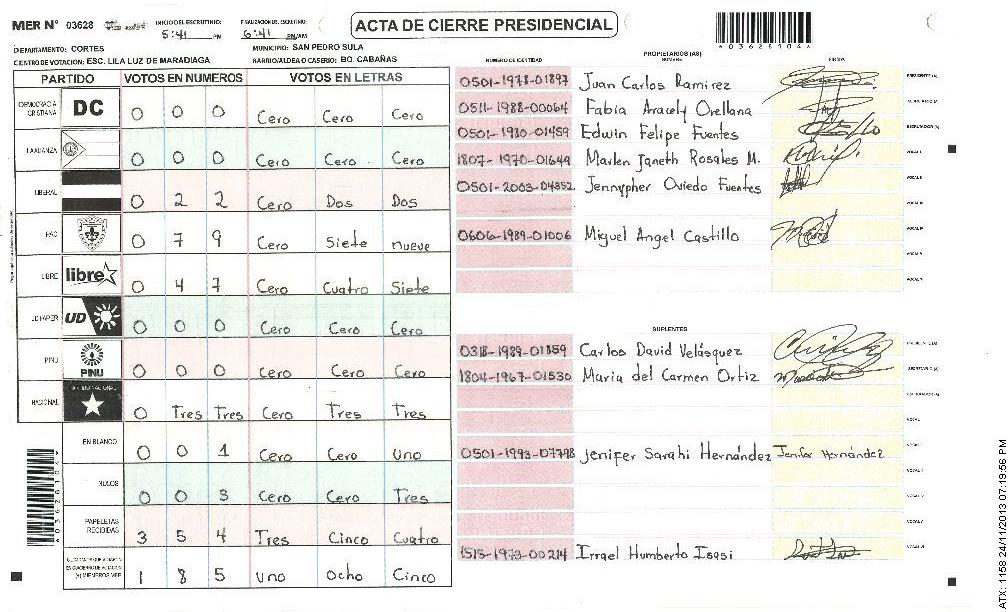 MER N° 03628 INICIO DEL ESCRUTINIO: 5:41 PM FINALIZACION DEL ESCRUTINIO: 6:41 PM/AM ACTA DE CIERRE PRESIDENCIAL
*03628104*
DEPARTAMENTO: CORTES MUNICIPIO: SAN PEDRO SULA
CENTRO DE VOTACION: ESC. LILA LUZ DE MARADIAGA BARRIO/ALDEA O CASERIO: BO. CABAÑAS
PARTIDO VOTOS EN NUMEROS VOTOS EN LETRAS
DEMOCRACIA CRISTIANA DC 0 0 0 Cero Cero Cero
LA ALIANZA 0 0 0 Cero Cero Cero
LIBERAL 0 2 2 Cero Dos Dos
PAC 0 7 9 Cero Siete nueve
LIBRE libre 0 4 7 Cero Cuatro Siete
UD FAPER UD 0 0 0 Cero Cero Cero
PINU PINU 0 0 0 Cero Cero Cero
NACIONAL 0 Tres Tres Cero Tres Tres
EN BLANCO 0 0 1 Cero Cero Uno
NULOS 0 0 3 Cero Cero Tres
PAPELETAS RECIBIDAS 3 5 4 Tres Cinco Cuatro
1 8 5 uno Ocho Cinco
*03628104*
PROPIETARIOS (AS)
NUMERO DE IDENTIDAD NOMBRE FIRMA
0501-1978-01897 Juan Carlos Ramirez PRESIDENTE (A)
0511-1988-00064 Fabia Aracely Orellana SECRETARIO (A)
0501-1980-01459 Edwin Felipe Fuentes ESCRUTADOR (A)
1807-1970-01649 Marlen Janeth Rosales M. VOCAL I
0501-2003-04352 Jennypher Oviedo Fuentes VOCAL II
VOCAL III
0606-1989-01006 Miguel Angel Castillo VOCAL IV
VOCAL V
SUPLENTES
0318-1989-01859 Carlos David Velásquez PRESIDENTE (A)
1804-1967-01530 Maria del Carmen Ortiz SECRETARIO (A)
ESCRUTADOR (A)
VOCAL I
0501-1993-07798 Jenifer Sarahi Hernández Jenifer Hernández
1513-1973-00214 Irrael Humberto Isasi
ATX: 1158 24/11/2013 07:19:56 PM